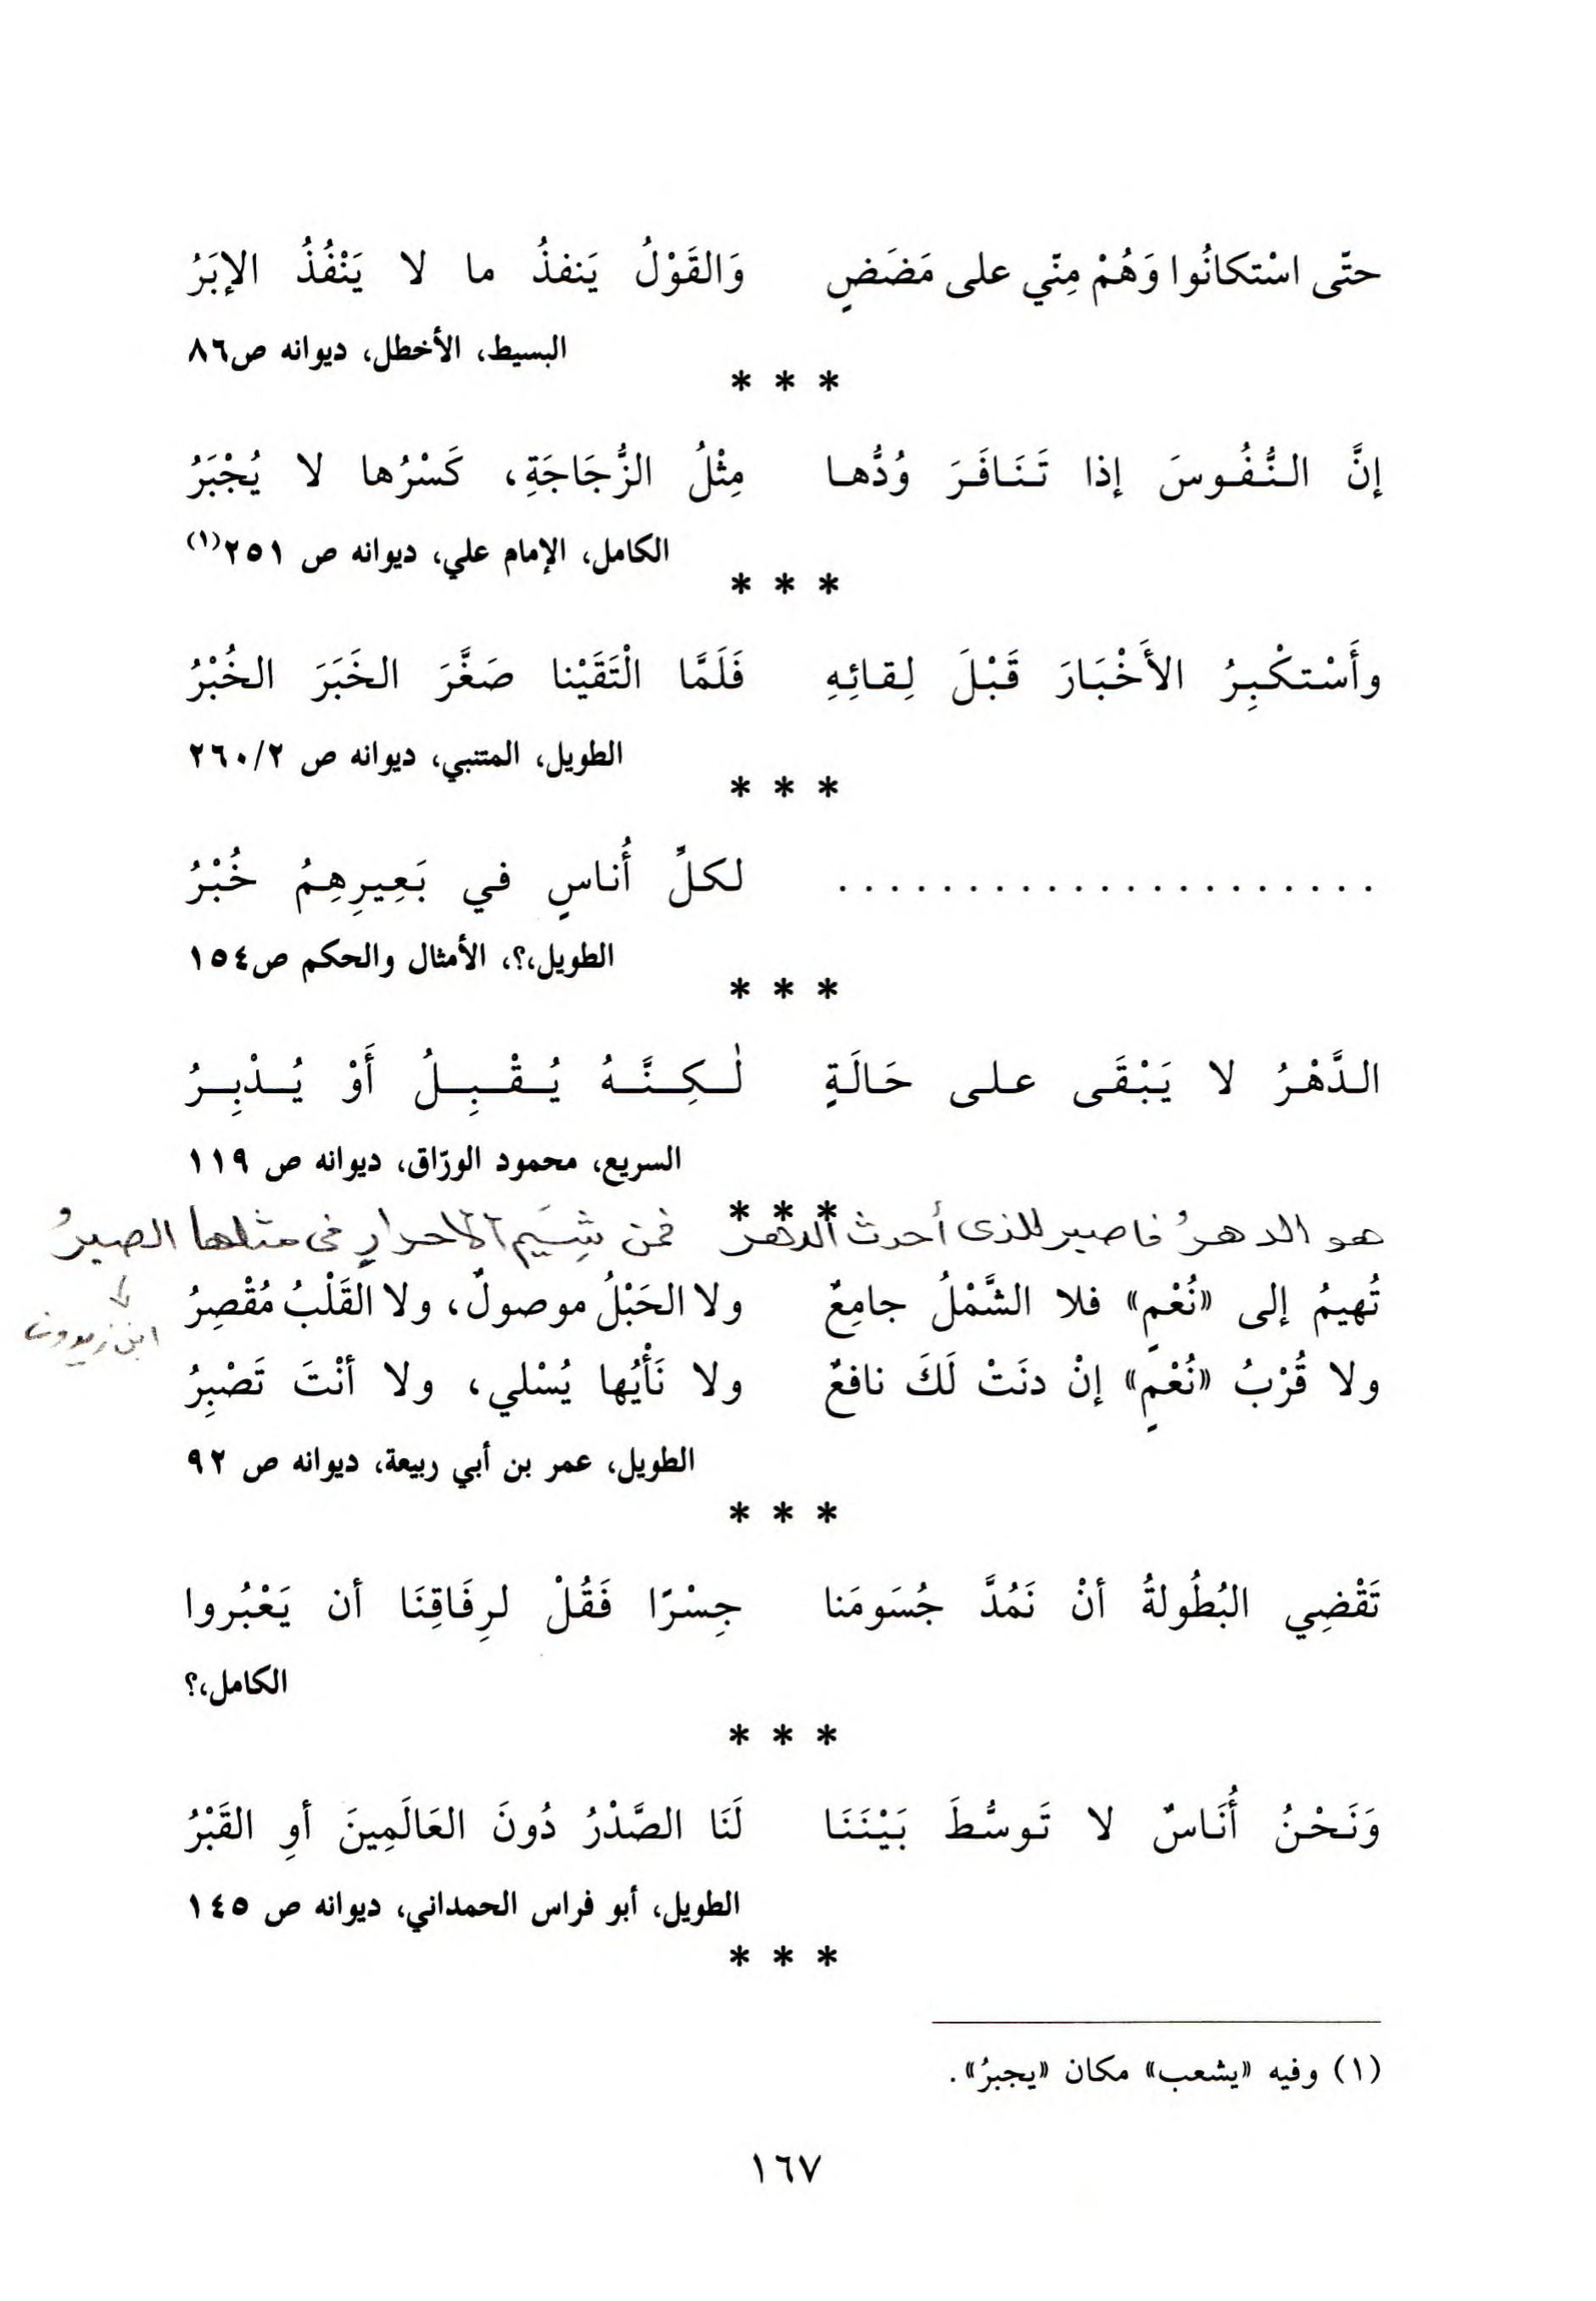 حتّى اسْتكانُوا وَهُمْ مِنّي على مَضَضٍ وَالقَوْلُ يَنفذُ ما لا يَنْفُذُ الإبَرُ
البسيط، الأخطل، ديوانه ص٨٦
* * *
إنَّ النُّفُوسَ إذا تَنَافَرَ وُدُّها مِثْلُ الزُّجَاجَةِ، كَسْرُها لا يُجْبَرُ
الكامل، الإمام علي، ديوانه ص ٢٥١(١)
* * *
وأَسْتكْبِرُ الأَخْبَارَ قَبْلَ لِقائِهِ فَلَمَّا الْتَقَيْنا صَغَّرَ الخَبَرَ الخُبْرُ
الطويل، المتنبي، ديوانه ص ٢٦٠/٢
* * *
. . . . . . . . . . . . . . . . . . . . . لكلِّ أُناسٍ في بَعِيرِهِمُ خُبْرُ
الطويل،؟، الأمثال والحكم ص١٥٤
* * *
الدَّهْرُ لا يَبْقَى على حَالَةٍ لٰكِنَّهُ يُقْبِلُ أَوْ يُدْبِرُ
السريع، محمود الورّاق، ديوانه ص ١١٩
* * *
هو الدهرُ فاصبر للذى أحدث الدهرُ فمن شِيَم الأحرارِ فى مثلها الصبرُ
ابن زيدون
تُهيمُ إلى «نُعْمٍ» فلا الشَّمْلُ جامِعٌ ولا الحَبْلُ موصولٌ، ولا القَلْبُ مُقْصِرُ
ولا قُرْبُ «نُعْمٍ» إنْ دنَتْ لَكَ نافعٌ ولا نَأْيُها يُسْلي، ولا أنْتَ تَصْبِرُ
الطويل، عمر بن أبي ربيعة، ديوانه ص ٩٢
* * *
تَقْضِي البُطُولةُ أنْ نَمُدَّ جُسَومَنا جِسْرًا فَقُلْ لرِفَاقِنَا أن يَعْبُروا
الكامل،؟
* * *
وَنَحْنُ أُنَاسٌ لا تَوسُّطَ بَيْنَنَا لَنَا الصَّدْرُ دُونَ العَالَمِينَ أوِ القَبْرُ
الطويل، أبو فراس الحمداني، ديوانه ص ١٤٥
* * *
(١) وفيه «يشعب» مكان «يجبرُ».
١٦٧